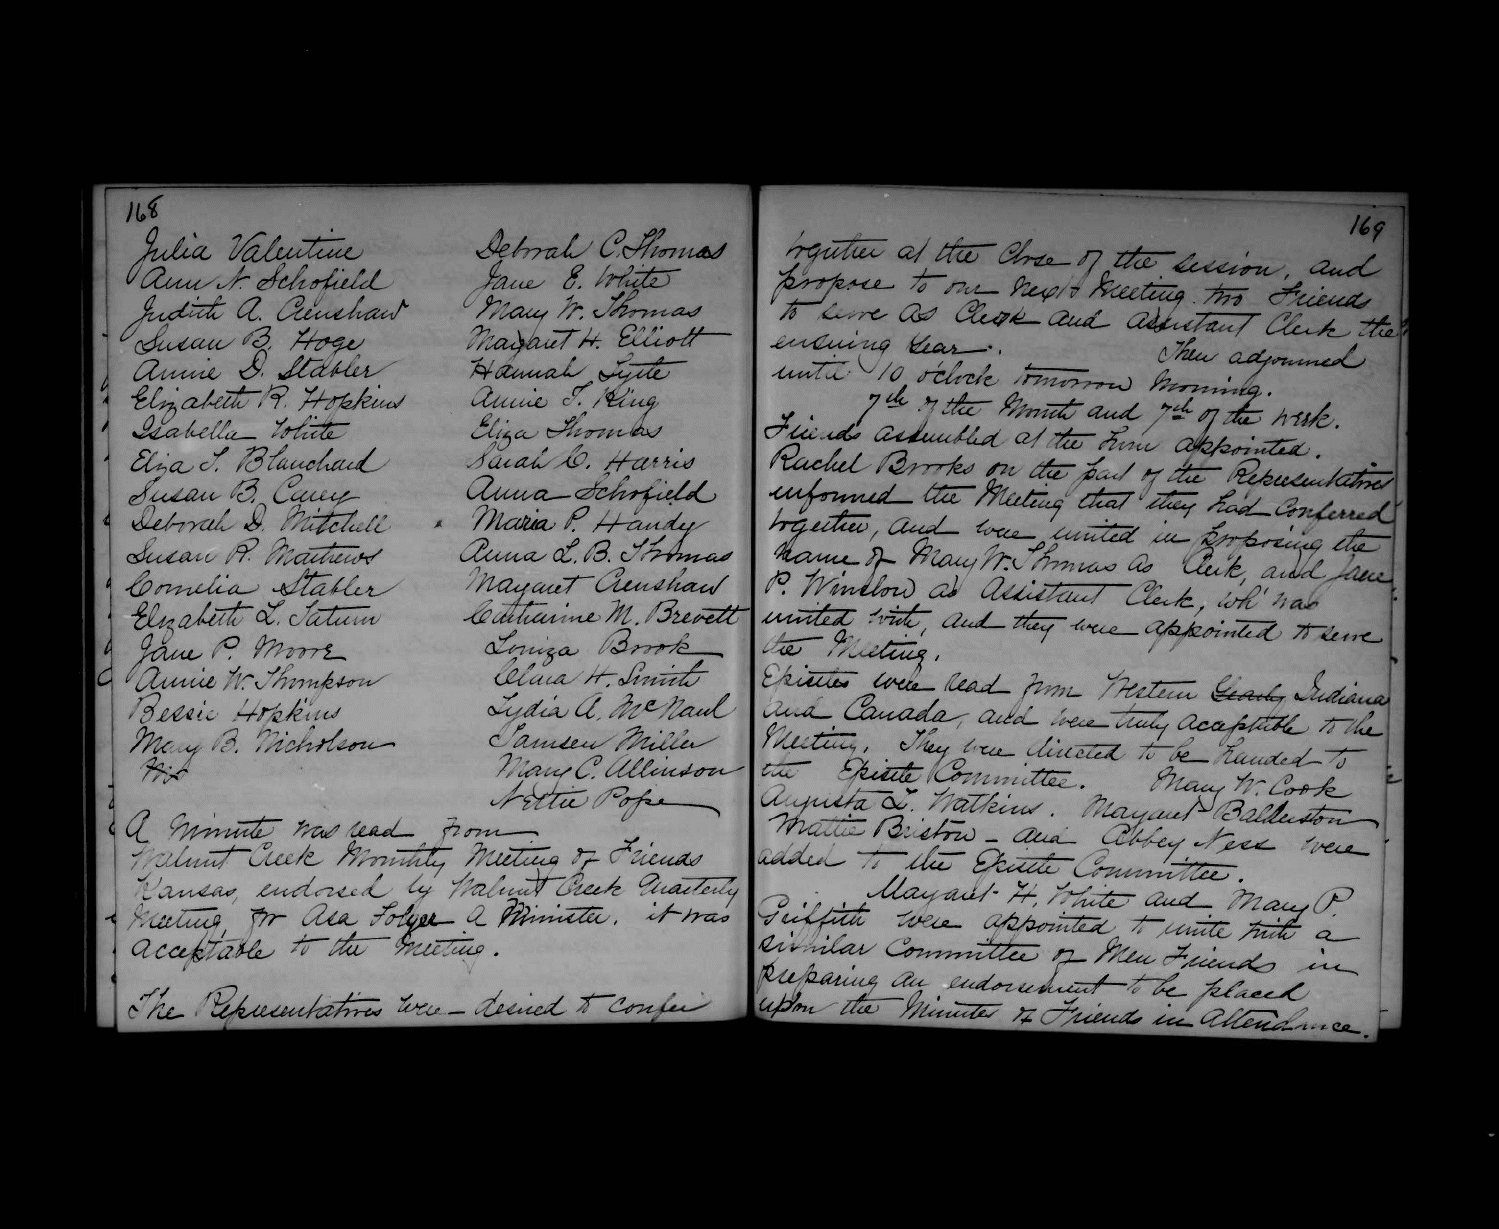 168
Julia Valentine
Ann N. Schofield
Judith A. Crenshaw
Susan B. Hoge
Annie D. Stabler
Elizabeth R. Hopkins
Isabella White
Eliza S. Blanchard
Susan B. Carey
Deborah D. Mitchell
Susan R. Mathews
Cornelia Stabler
Elizabeth L. Tatum
Jane P. Moore
Annie W. Thompson
Bessie Hopkins
Mary B. Nicholson
Deborah C. Thomas
Jane E. White
Mary W. Thomas
Margaret H. Elliott
Hannah Lyte
Annie T. King
Eliza Thomas
Sarah C. Harris
Anna Schofield
Maria P. Handy
Anna L. B. Thomas
Margaret Crenshaw
Catharine M. Brevett
Louiza Brook
Clara H. Smith
Lydia A. McNaul
Tamsen Miller
Mary C. Allinson
Nettie Pope
A Minute was read from
Walnut Creek Monthly Meeting of Friends
Kansas, endorsed by Walnut Creek Quarterly
Meeting, for Asa Folger A Minister. it was
acceptable to the Meeting.
The Representatives were desired to confer
169
together at the close of the session, and
propose to our next Meeting two Friends
to serve as Clerk and Assistant Clerk the
ensuing year. Then adjourned
until 10 oclock tomorrow morning.
7th of the Month and 7th of the week.
Friends assembled at the hour appointed.
Rachel Brooks on the part of the Representatives
informed the Meeting that they had conferred
together, and were united in proposing the
name of Mary W. Thomas as Clerk, and Jane
P. Winslow as Assistant Clerk, wh' was
united with, and they were appointed to serve
the Meeting.
Episltes were read from Western Yearly Indiana
and Canada, and were truly acceptable to the
Meeting. They were directed to be handed to
the Epislte Committee. Mary W. Cook
Augusta L. Watkins. Margaret Balderston
Mattie Bristow - and Abbey Ness were
added to the Epislte Committee.
Margaret H. White and Mary P.
Griffith were appointed to unite with a
similar Committee of Men Friends in
preparing an endorsement to be placed
upon the Minutes of Friends in attendance.